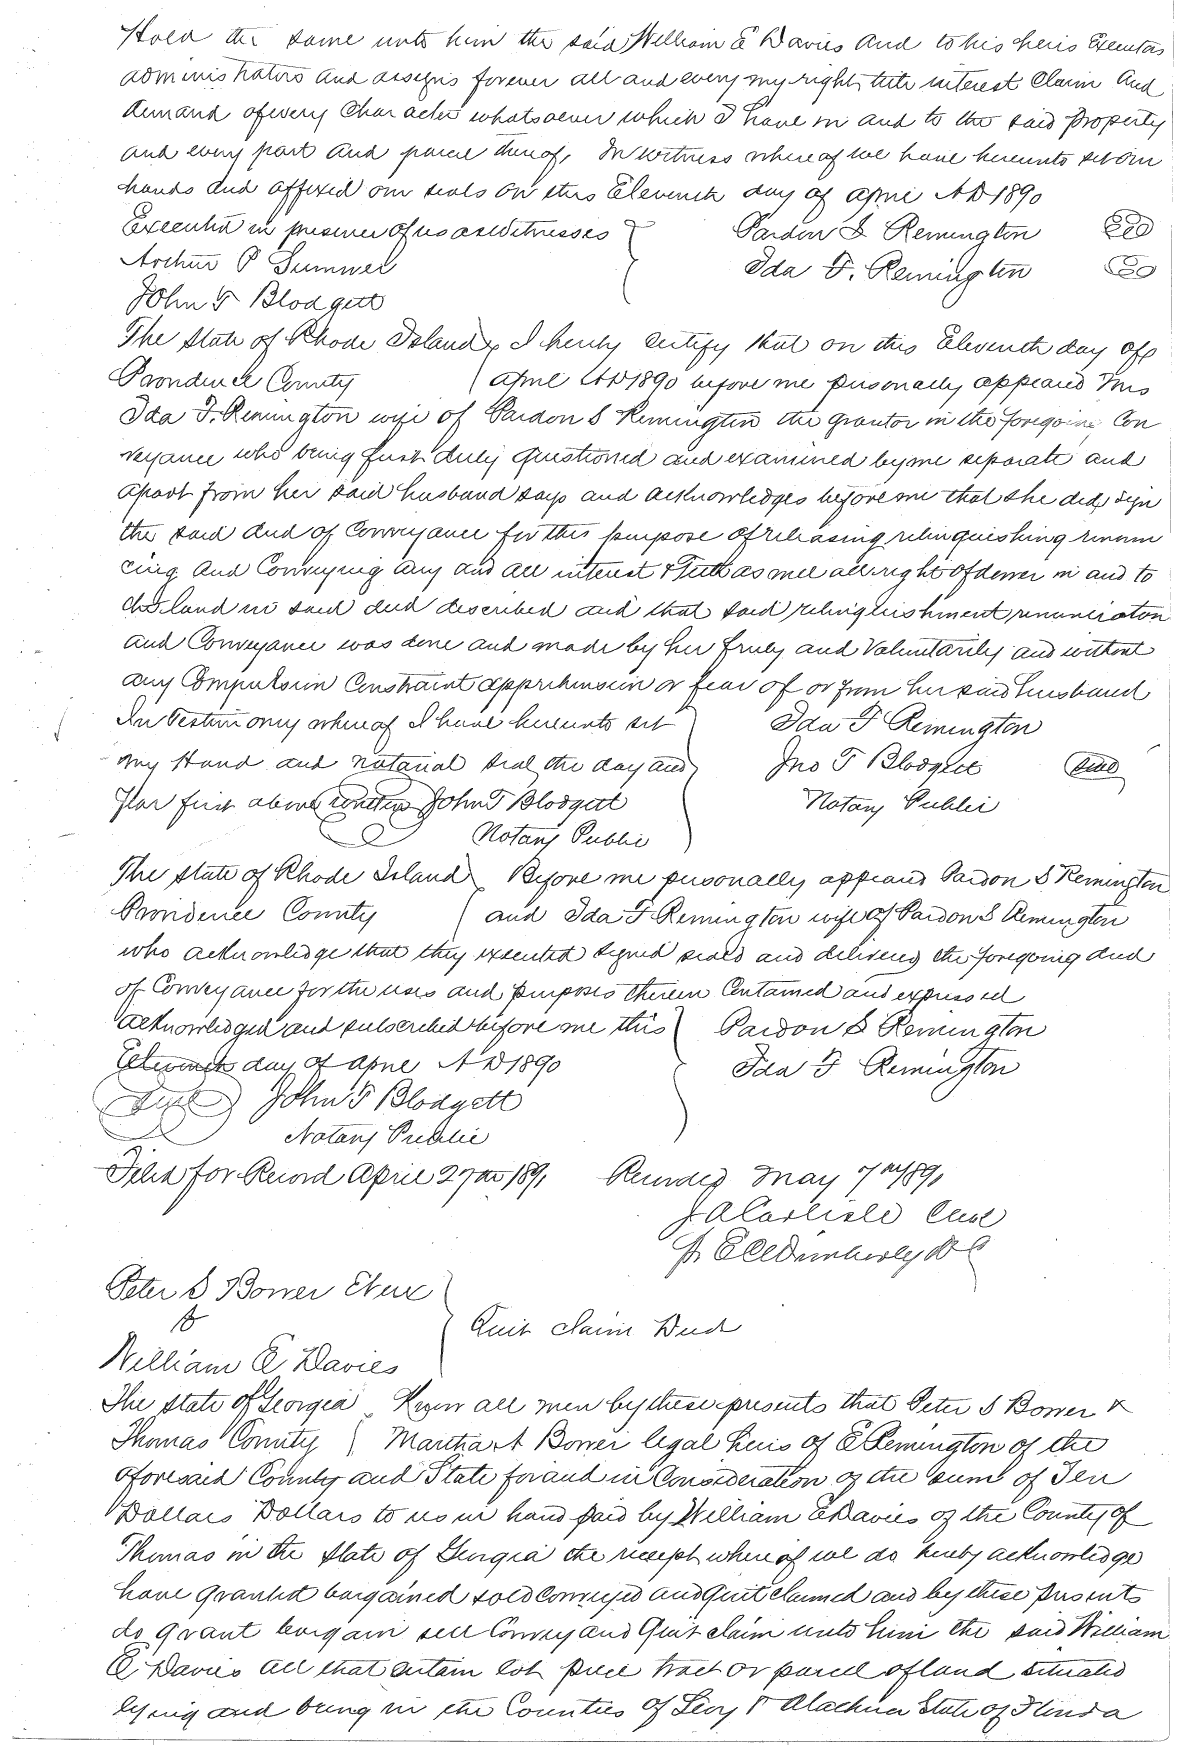 Hold the same unto him the said William E Davies and to his heirs Executors
administrators and assigns forever all and every my right title interest Claim and
demand of every Character whatsoever which I have in and to the said property
and every part and parcel thereof, In witness whereof we have hereunto set our
hands and affixed our seals on this Eleventh day of April AD 1890
Executed in presence of us as Witnesses Pardon S Remington Seal
Arthur P Sumner Ida F. Remington Seal
John T Blodgett
The State of Rhode Island I hereby certify that on this Eleventh day of
Providence County April AD 1890 before me personally appeared Mrs
Ida F. Remington wife of Pardon S Remington the grantor in the foregoing Con
veyance who being first duly questioned and examined by me separate and
apart from her said husband says and acknowledges before me that she did sign
the said deed of Conveyance for the purpose of releasing relinquishing renoun
cing and Conveying any and all interest & Title as well all right of dower in and to
the land in said deed described and that said relinquishment renunciation
and Conveyance was done and made by her freely and Voluntarily and without
any Compulsion Constraint apprehension or fear of or from her said husband
In Testimony whereof I have hereunto set Ida F Remington
my Hand and notarial seal the day and Jno T Blodgett Seal
Year first above written John T Blodgett Notary Public
Notary Public
The State of Rhode Island Before me personally appeared Pardon S Remington
Providence County and Ida F Remington wife of Pardon S Remington
who acknowledge that they executed signed sealed and delivered the foregoing deed
of Conveyance for the uses and purposes therein Contained and expressed
Acknowledged and subscribed before me this Pardon S Remington
Eleventh day of April AD 1890 Ida F Remington
Seal John T Blodgett
Notary Public
Filed for Record April 27th 1891 Recorded May 7th 1891
J A Carlisle Clerk
DC
Peter S Bower Et ux
to
Quit Claim Deed
William E Davies
The State of Georgia Know all men by these presents that Peter S Bower &
Thomas County Martha A Bower legal heirs of E Remington of the
aforesaid County and State for and in Consideration of the sum of Ten
Dollars Dollars to us in hand paid by William E Davies of the County of
Thomas in the State of Georgia the receipt whereof we do hereby acknowledge
have granted bargained sold Conveyed and Quit claimed and by these presents
do grant bargain sell Convey and Quit claim unto him the said William
E Davies all that certain lot piece tract or parcel of land situated
lying and being in the Counties of Levy & Alachua State of Florida